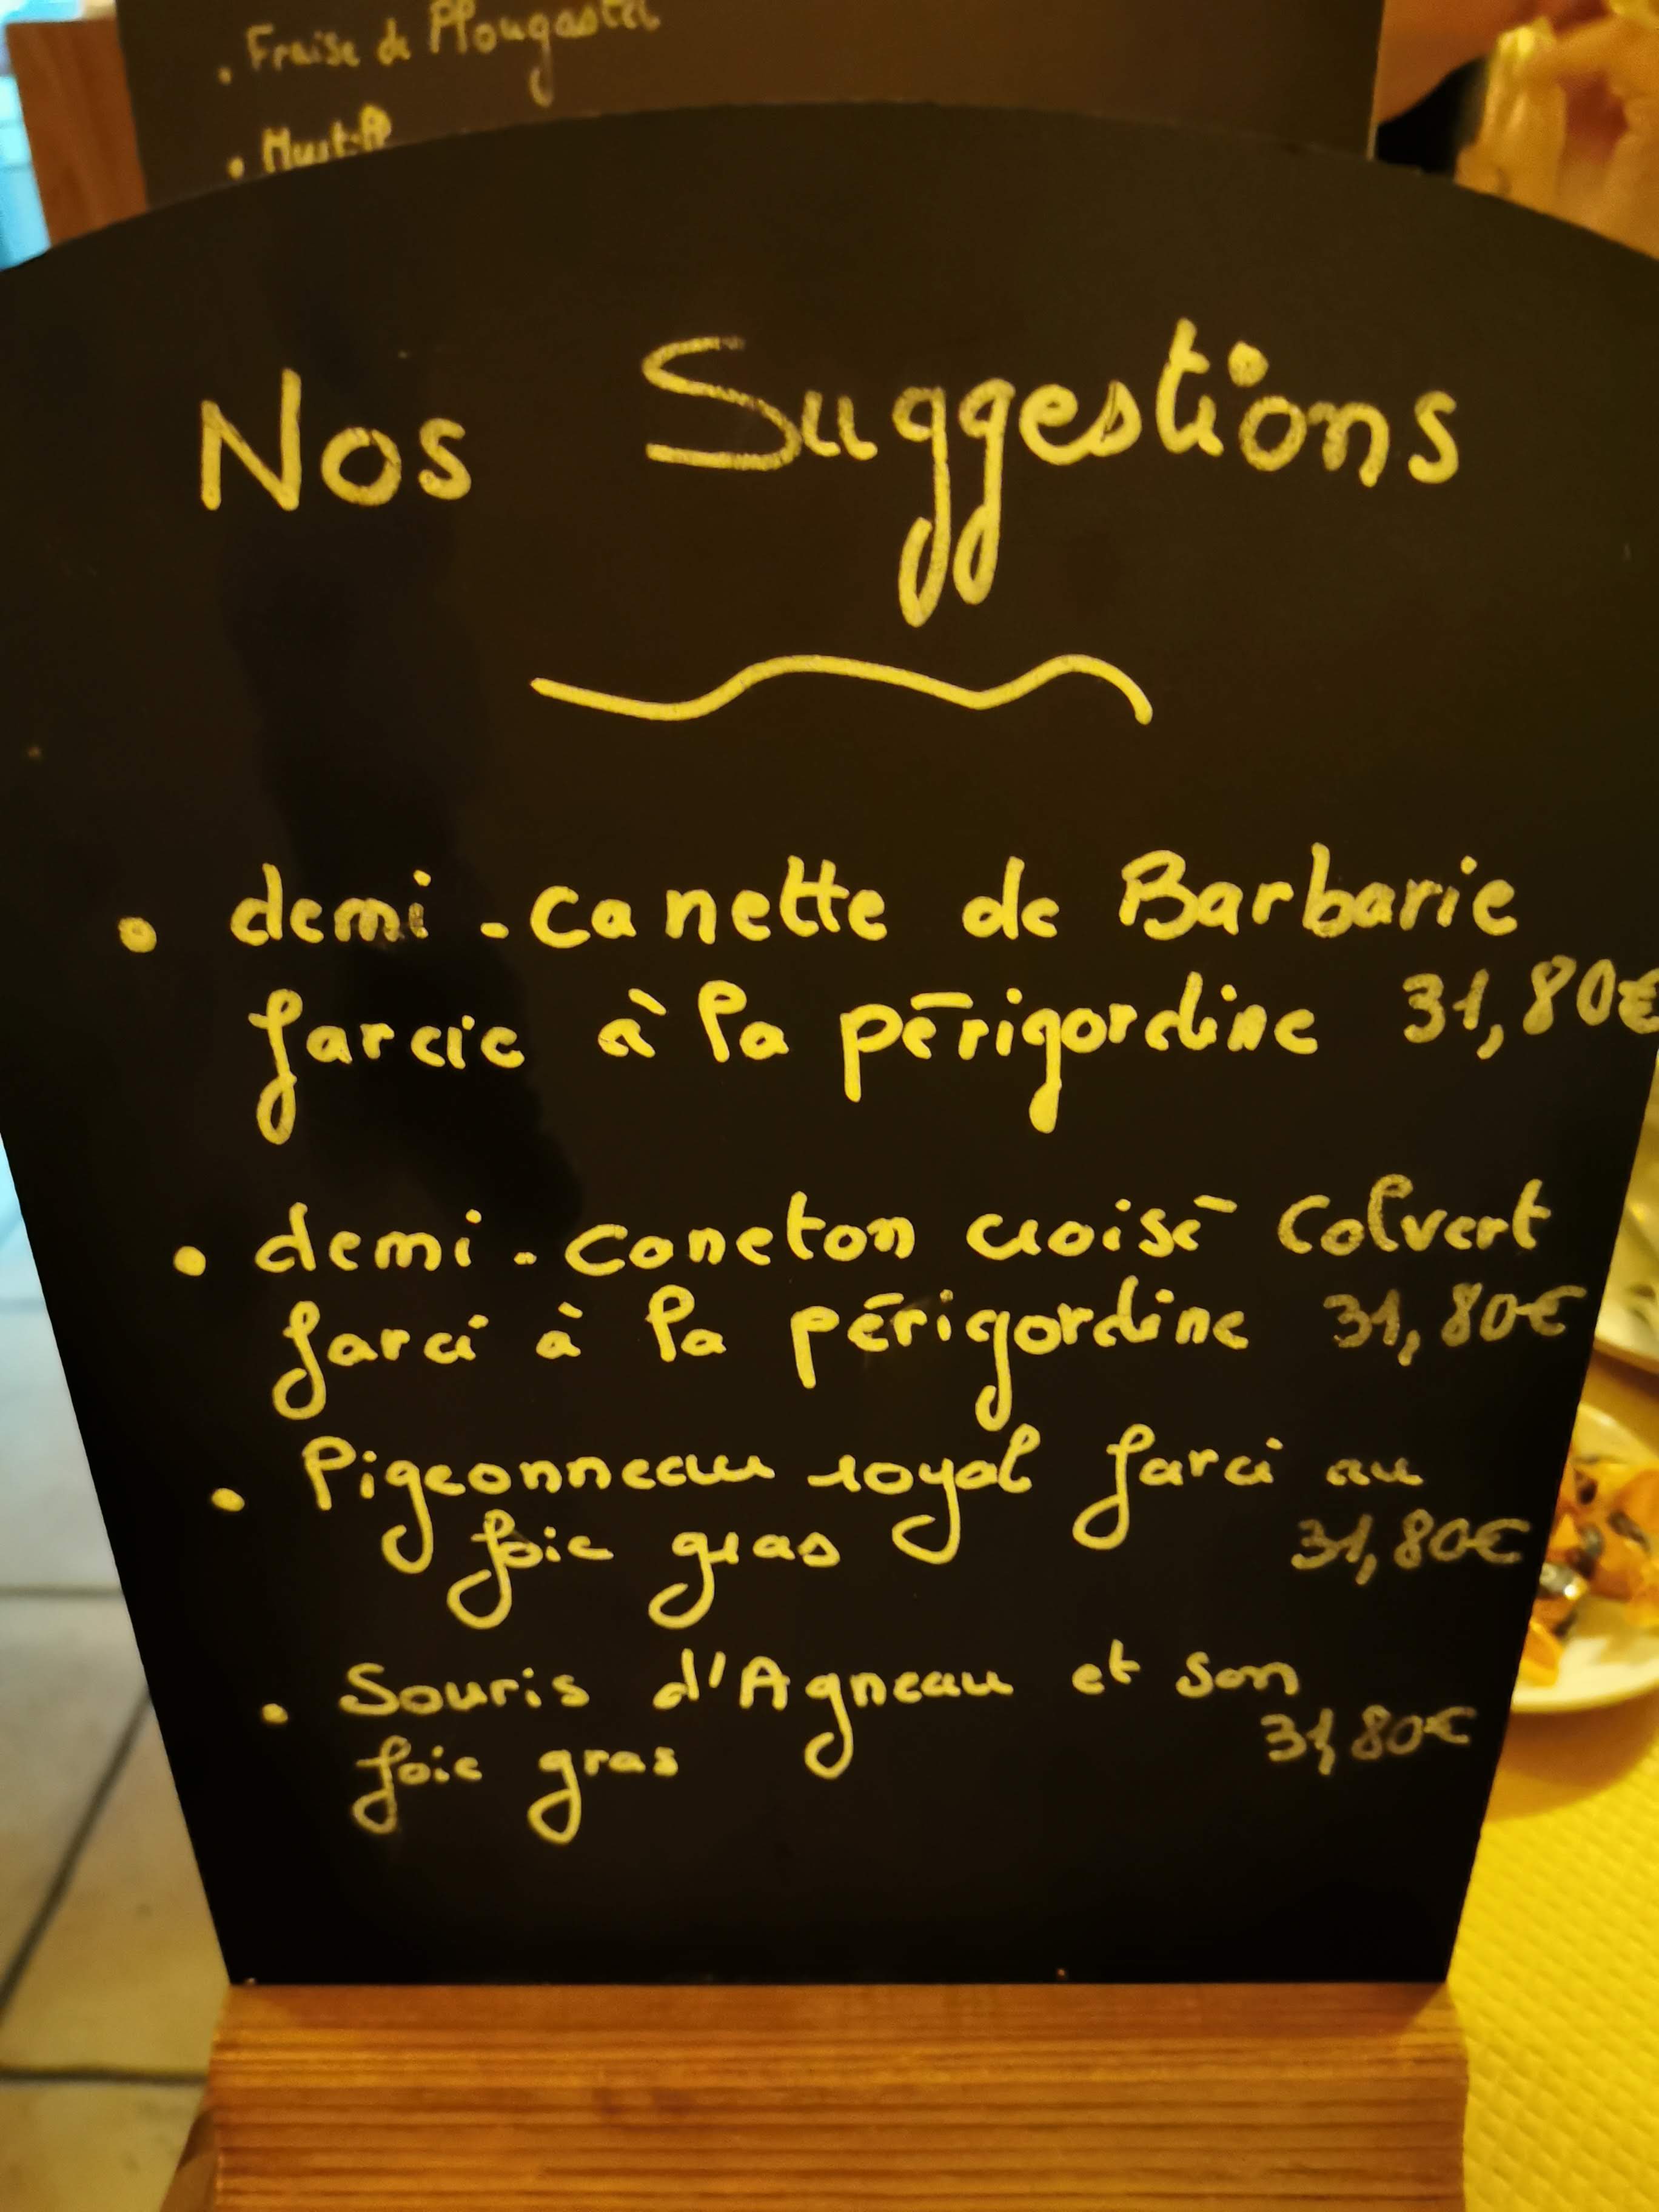 • Fraise de Plougastel
•
Nos Suggestions
• demi-canette de Barbarie
farcie à la périgordine 31,80€
• demi-caneton croisé Colvert
farci à la périgordine 31,80€
• Pigeonneau royal farci au
foie gras 31,80€
• Souris d'Agneau et son
foie gras 31,80€